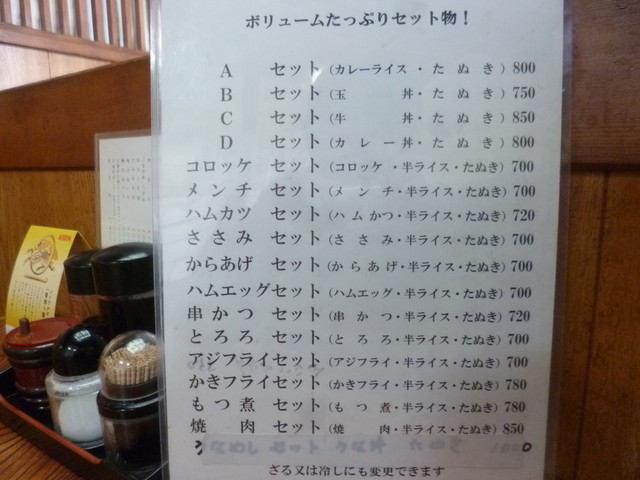 ボリュームたっぷりセット物!
A セット(カレーライス・たぬき)800
B セット(玉丼・たぬき)750
C セット(牛丼・たぬき)850
D セット(カレー丼・たぬき)800
コロッケ セット(コロッケ・半ライス・たぬき)700
メンチ セット(メンチ・半ライス・たぬき)700
ハムカツ セット(ハムかつ・半ライス・たぬき)720
ささみ セット(ささみ・半ライス・たぬき)700
からあげ セット(からあげ・半ライス・たぬき)700
ハムエッグセット(ハムエッグ・半ライス・たぬき)700
串かつ セット(串かつ・半ライス・たぬき)720
とろろ セット(とろろ・半ライス・たぬき)700
アジフライセット(アジフライ・半ライス・たぬき)700
かきフライセット(かきフライ・半ライス・たぬき)780
もつ煮 セット(もつ煮・半ライス・たぬき)780
焼肉 セット(焼肉・半ライス・たぬき)850
セット うな丼 たぬき
ざる又は冷しにも変更できます